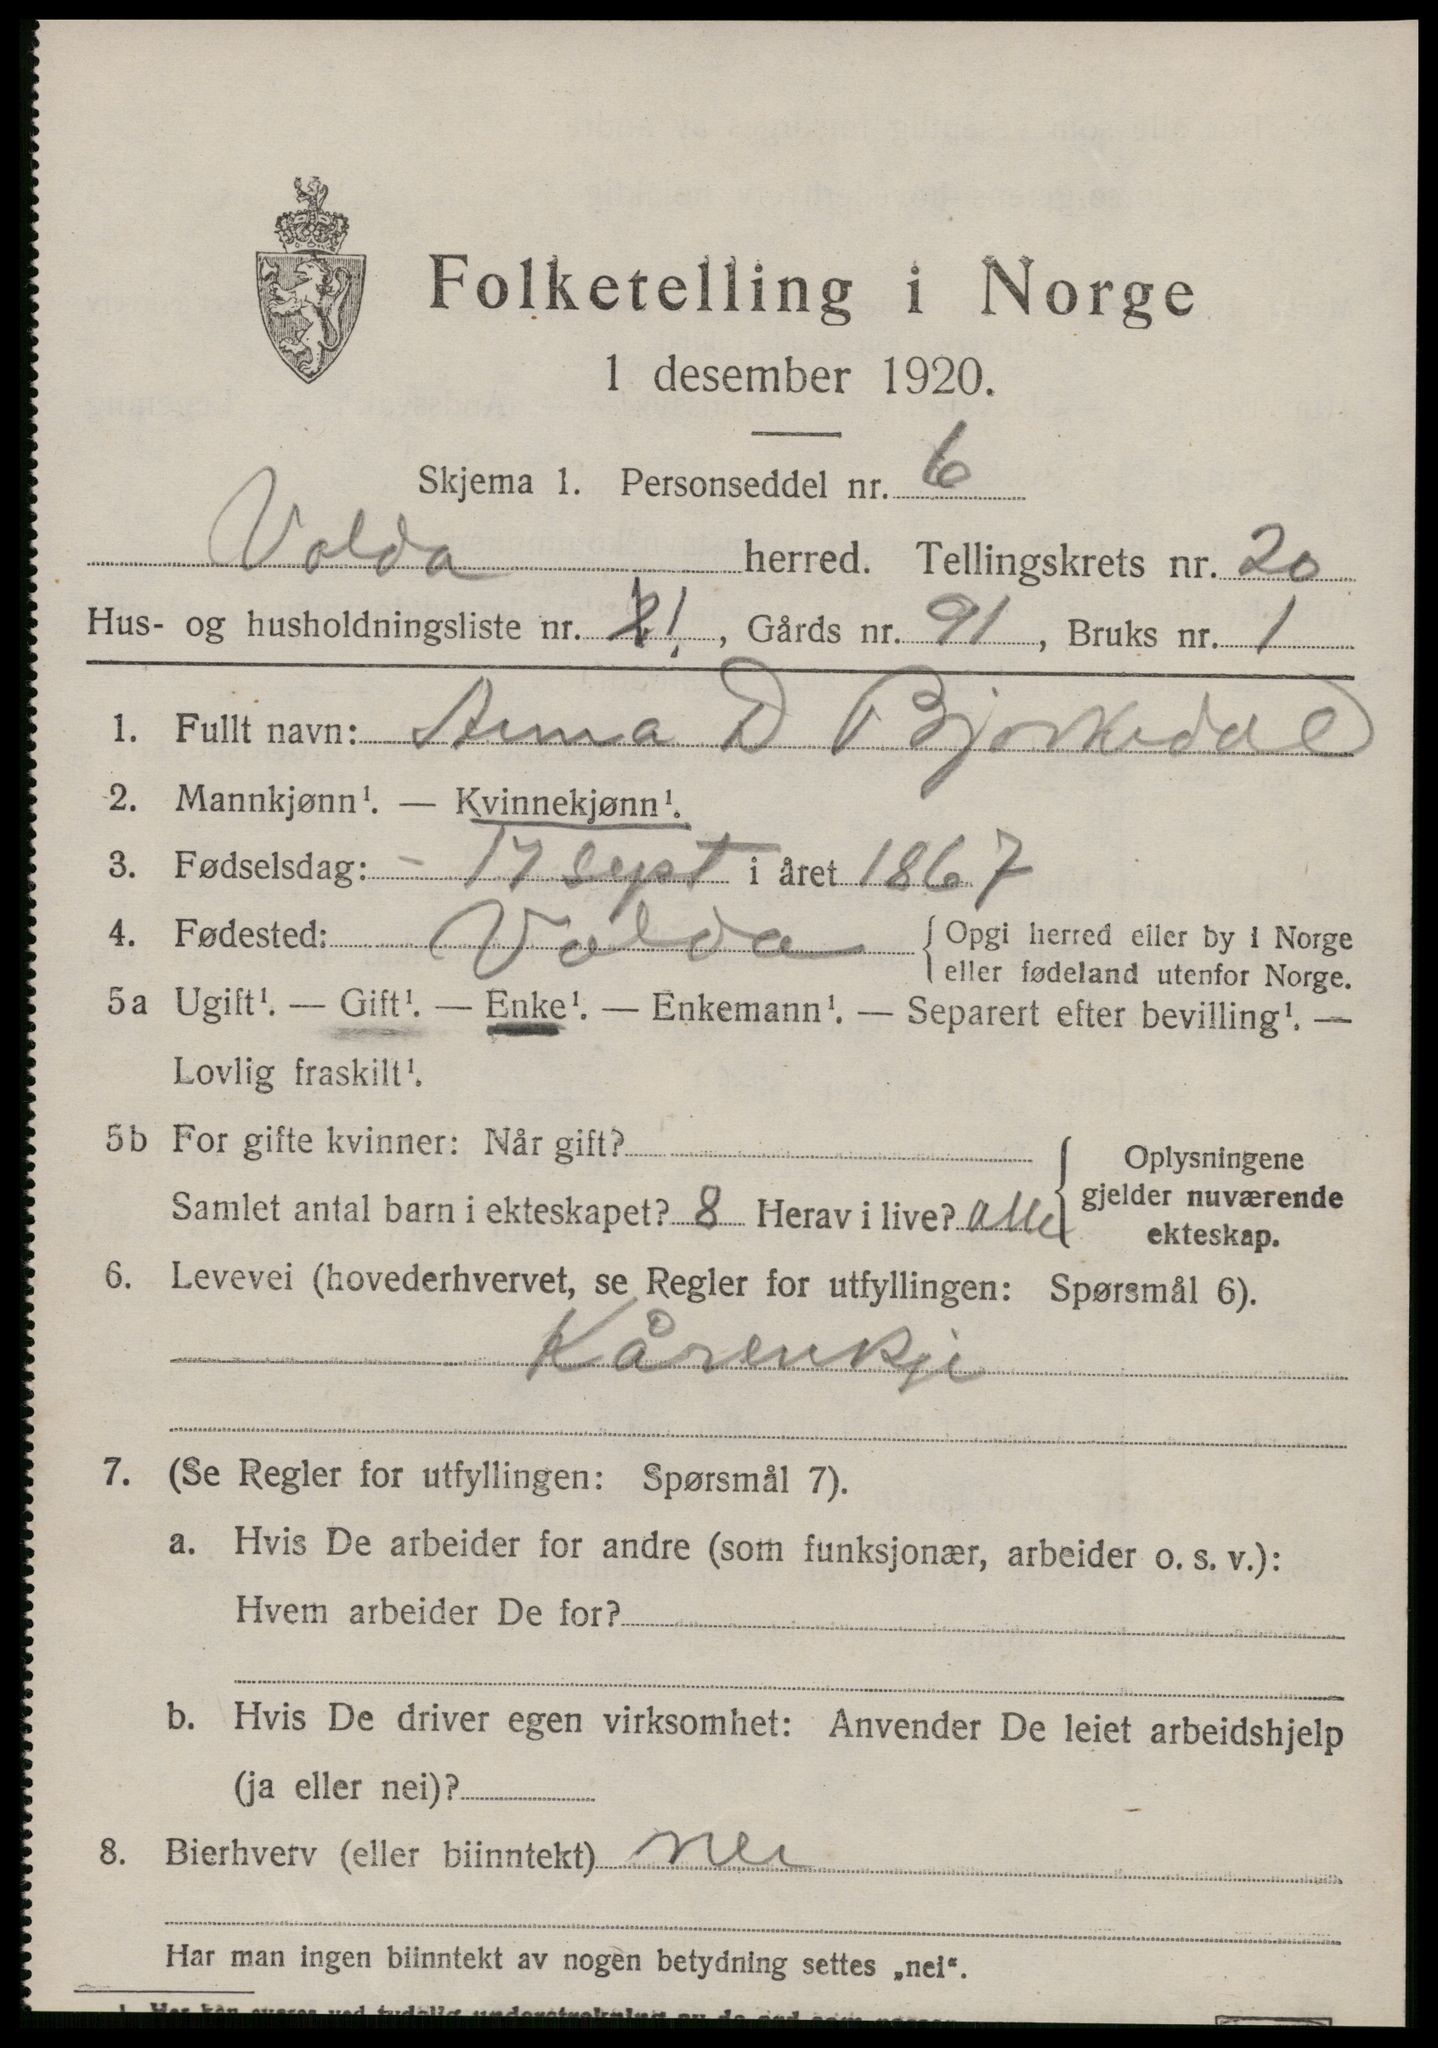 Folketelling i Norge
1 desember 1920.
Skjema 1. Personseddel nr. 6
Volda herred. Tellingskrets nr. 20
Hus- og husholdningsliste nr. 1, Gårds nr. 91, Bruks nr. 1
1. Fullt navn: Anna D Bjorkedal
2. Mannkjønn¹. — Kvinnekjønn¹.
3. Fødselsdag: - 17 sept i året 1867
4. Fødested: Volda { Opgi herred eller by i Norge
eller fødeland utenfor Norge.
5a Ugift¹. — Gift¹. — Enke¹. — Enkemann¹. — Separert efter bevilling¹. —
Lovlig fraskilt¹.
5b For gifte kvinner: Når gift?
Samlet antal barn i ekteskapet? 8 Herav i live? alle
Oplysningene
gjelder nuværende
ekteskap.
6. Levevei (hovederhvervet, se Regler for utfyllingen: Spørsmål 6).
Kårenkje
7. (Se Regler for utfyllingen: Spørsmål 7).
a. Hvis De arbeider for andre (som funksjonær, arbeider o. s. v.):
Hvem arbeider De for?
b. Hvis De driver egen virksomhet: Anvender De leiet arbeidshjelp
(ja eller nei)?
8. Bierhverv (eller biinntekt) nei
Har man ingen biinntekt av nogen betydning settes „nei“.